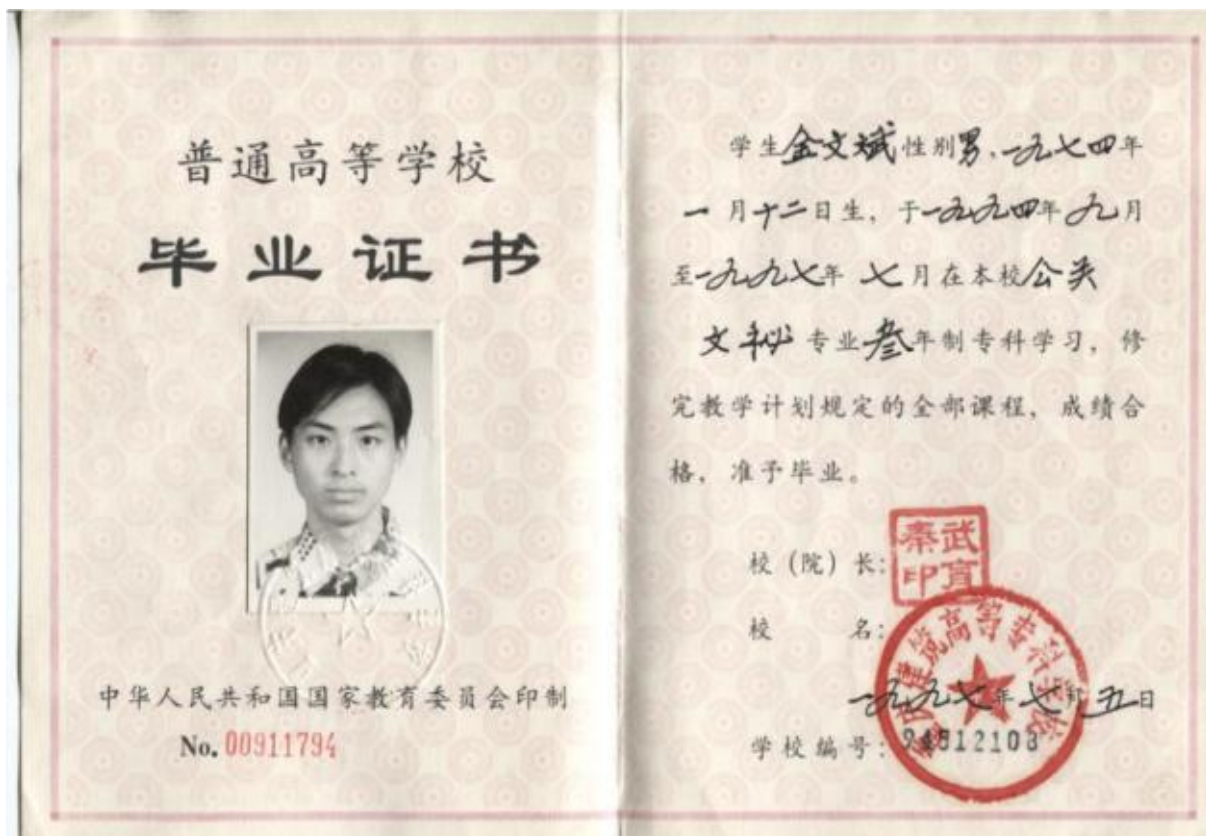 普通高等学校
毕业证书
中华人民共和国国家教育委员会印制
No. 00911794
学生金文斌性别男,一九七四年
一月十二日生,于一九九四年九月
至一九九七年 七月在本校公关
文秘专业叁年制专科学习,修
完教学计划规定的全部课程,成绩合
格,准予毕业。
校(院)长:
武育
秦印
校 名:
建筑高等专科学校
一九九七年七月五日
学校编号:94812108